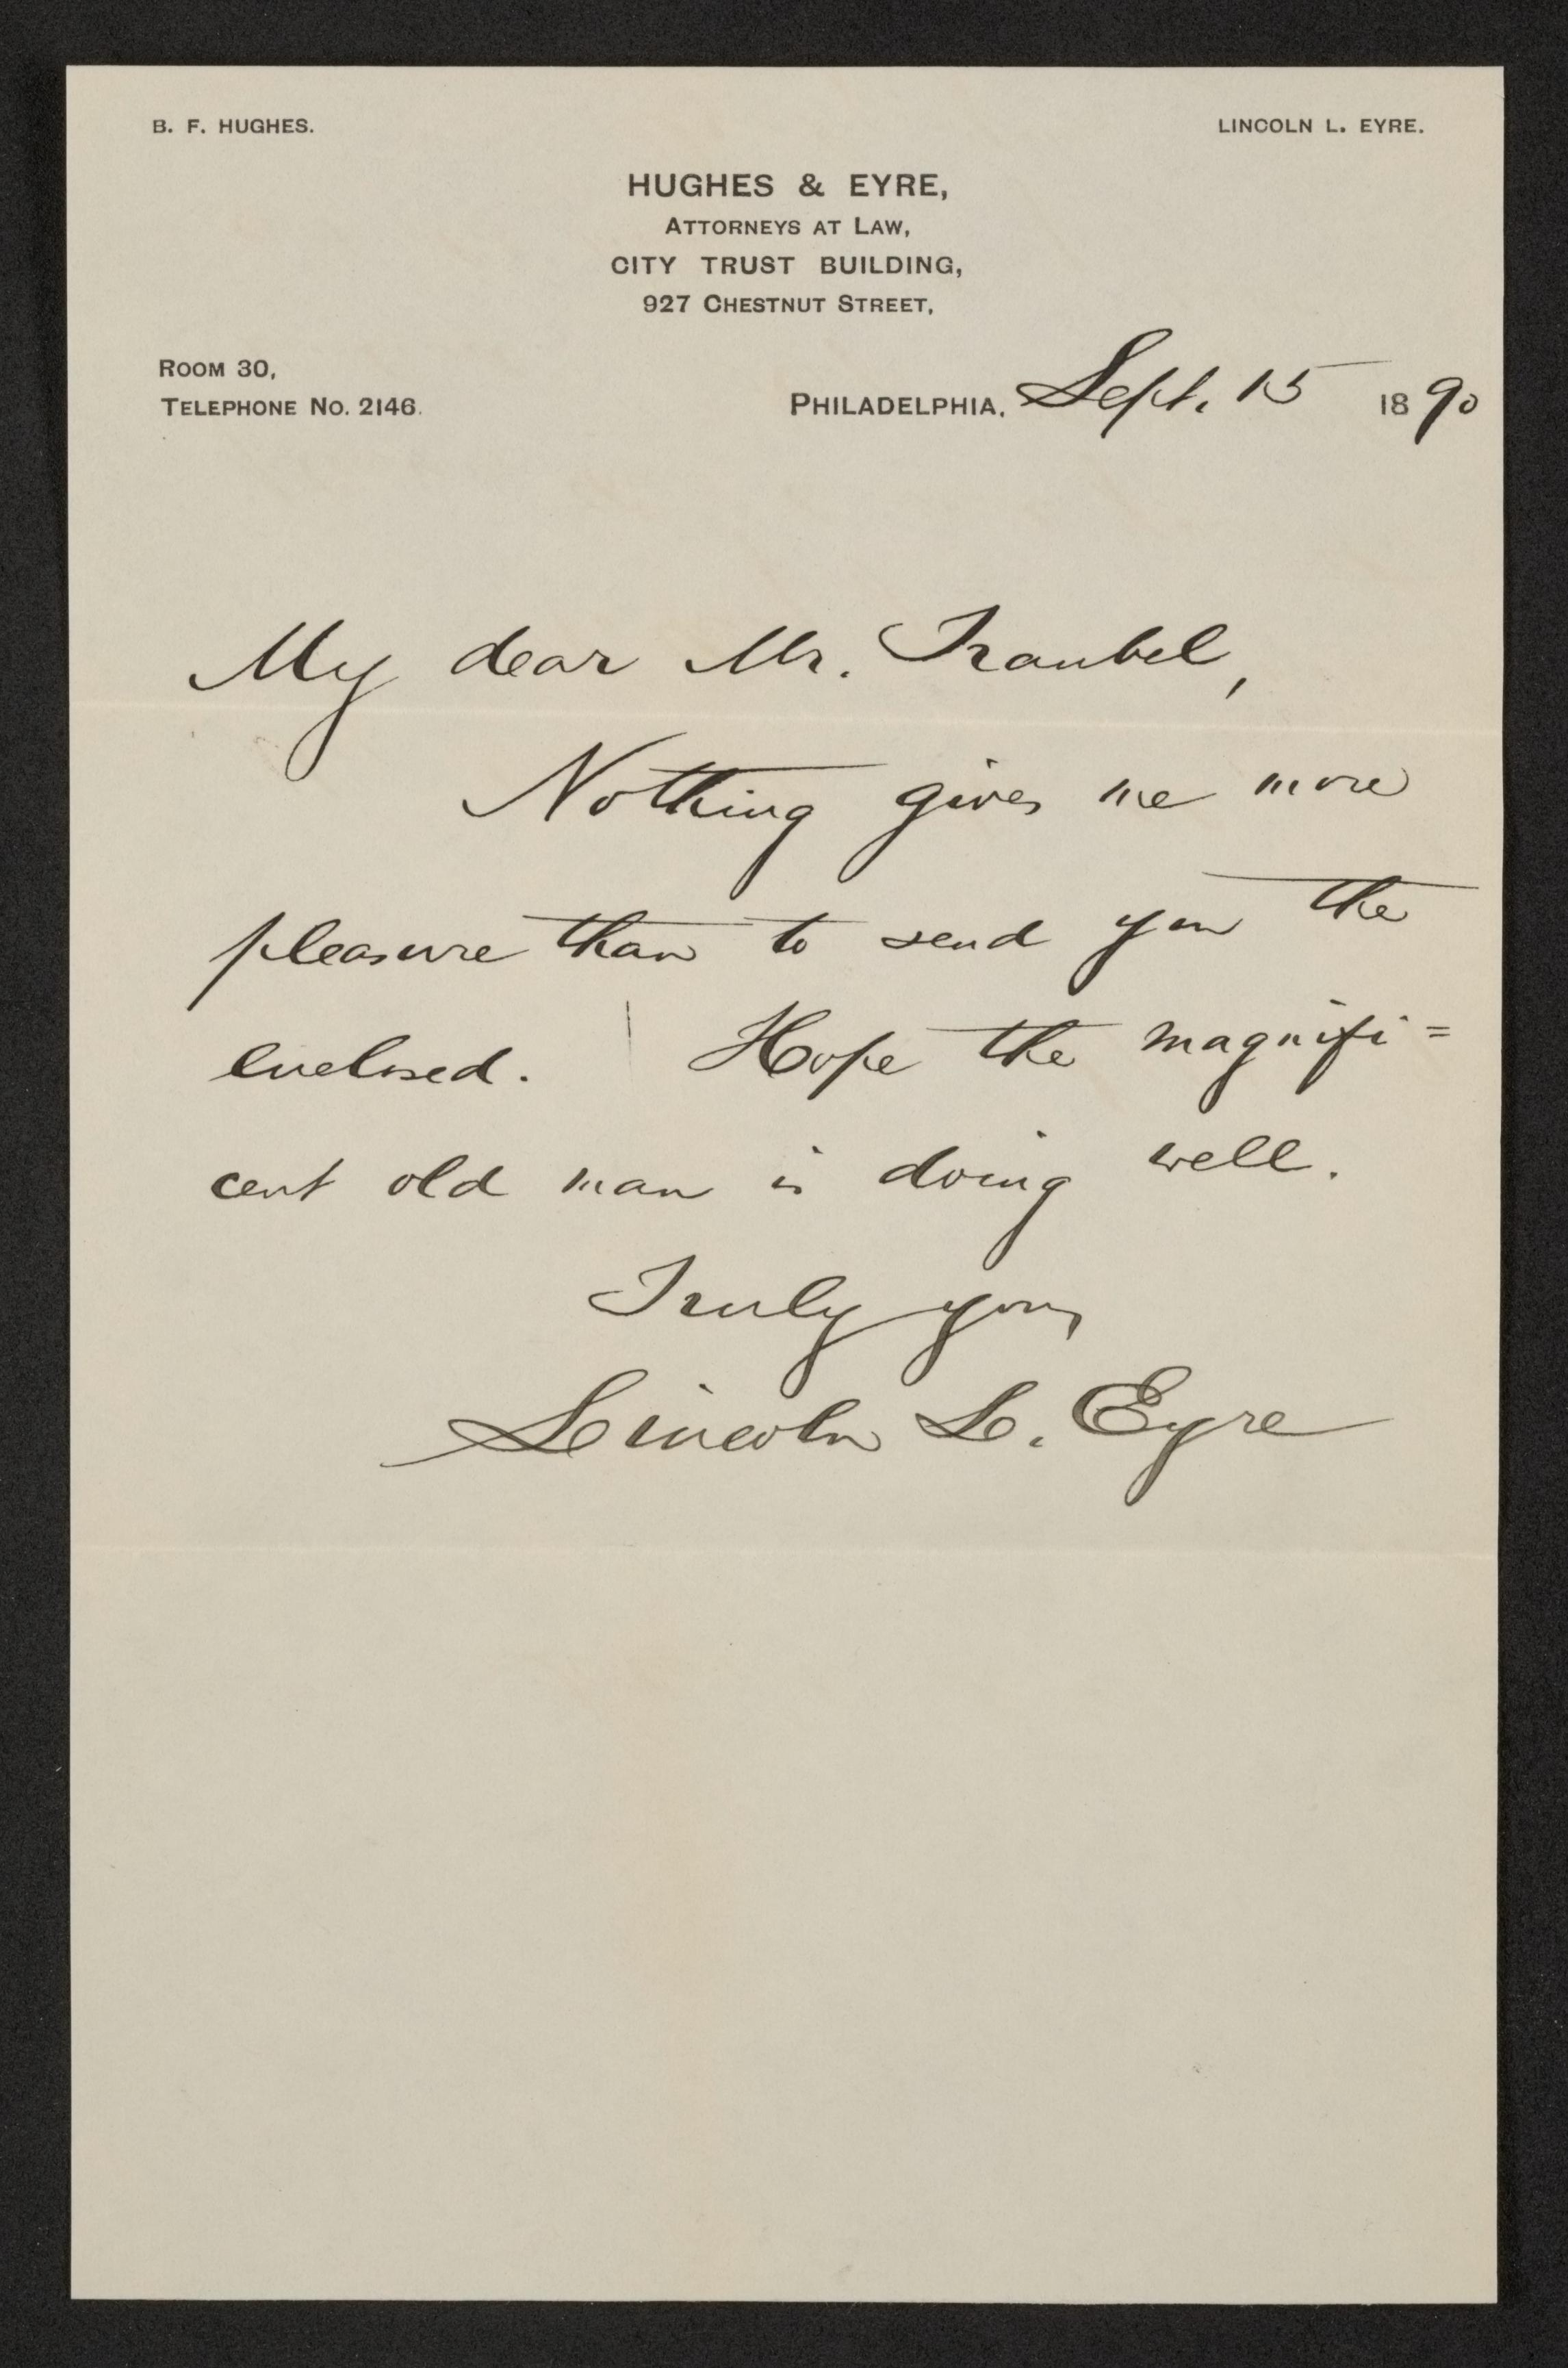 B. F. HUGHES. LINCOLN L. EYRE.
HUGHES & EYRE,
ATTORNEYS AT LAW,
CITY TRUST BUILDING,
927 CHESTNUT STREET,
ROOM 30,
TELEPHONE No. 2146.
PHILADELPHIA, Sept. 15 1890
My dear Mr. Traubel,
Nothing gives me more
pleasure than to send you the
enclosed. Hope the magnifi=
cent old man is doing well.
Truly yours
Lincoln L. Eyre